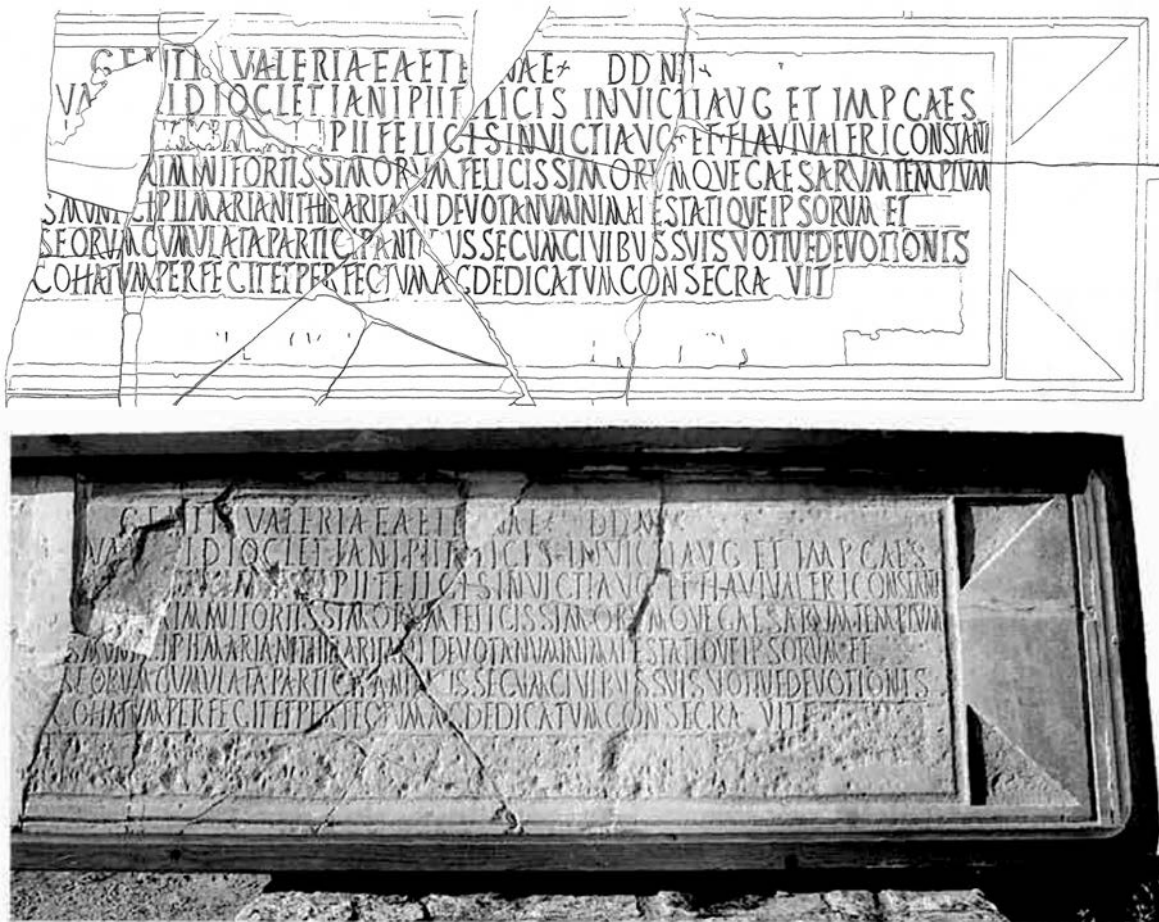 GENTI VALERIAE AETE NAE DD
DIOCLETIANI PII FELICIS INVICTI AVG ET IMP CAES
PII FELICIS INVICTI AVG ET FLAVI VALERI
FORTISSIMORVM FELICISSIMORVMQVE CAESARVM TEMPLVM
MVNICIPII MARIANI THIBARITANI DEVOTA NVMINI MAIESTATIQVE IPSORVM ET
CVMVLATA PARTICIPANTIBVS SECVM CIVIBVS SVIS VOTIVE DEVOTIONIS
COHATVM PERFECIT ET PERFECTVM AC DEDICATVM CONSECRA VIT
GENTI VALERIAE AETE NAE DD
DIOCLETIANI PII FELICIS INVICTI AVG ET IMP CAES
PII FELICIS INVICTI AVG ET FLAVI VALERI
FORTISSIMORVM FELICISSIMORVMQVE CAESARVM TEMPLVM
MVNICIPII MARIANI THIBARITANI DEVOTA NVMINI MAIESTATIQVE IPSORVM ET
CVMVLATA PARTICIPANTIBVS SECVM CIVIBVS SVIS VOTIVE DEVOTIONIS
COHATVM PERFECIT ET PERFECTVM AC DEDICATVM CONSECRA VIT